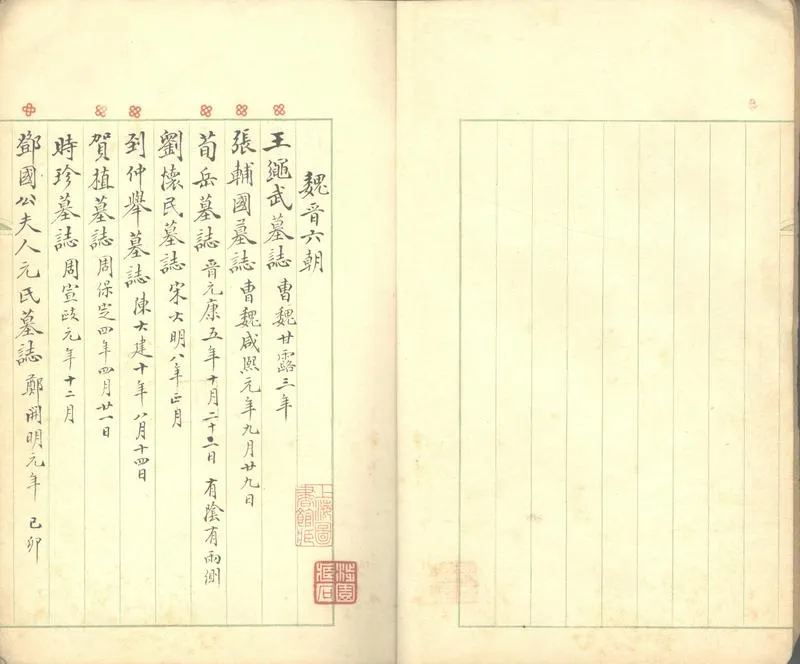 魏晉六朝
王繩武墓誌 曹魏甘露三年
張輔國墓誌 曹魏咸熙元年九月廿九日
荀岳墓誌 晉元康五年十月二十二日 有陰有兩測
劉懷民墓誌 宋大明八年正月
到仲舉墓誌 陳大建十年八月十四日
賀植墓誌 周保定四年四月廿一日
時珍墓誌 周宣政元年十二月
鄧國公夫人元氏墓誌 鄭開明元年 己卯
上海圖書館藏